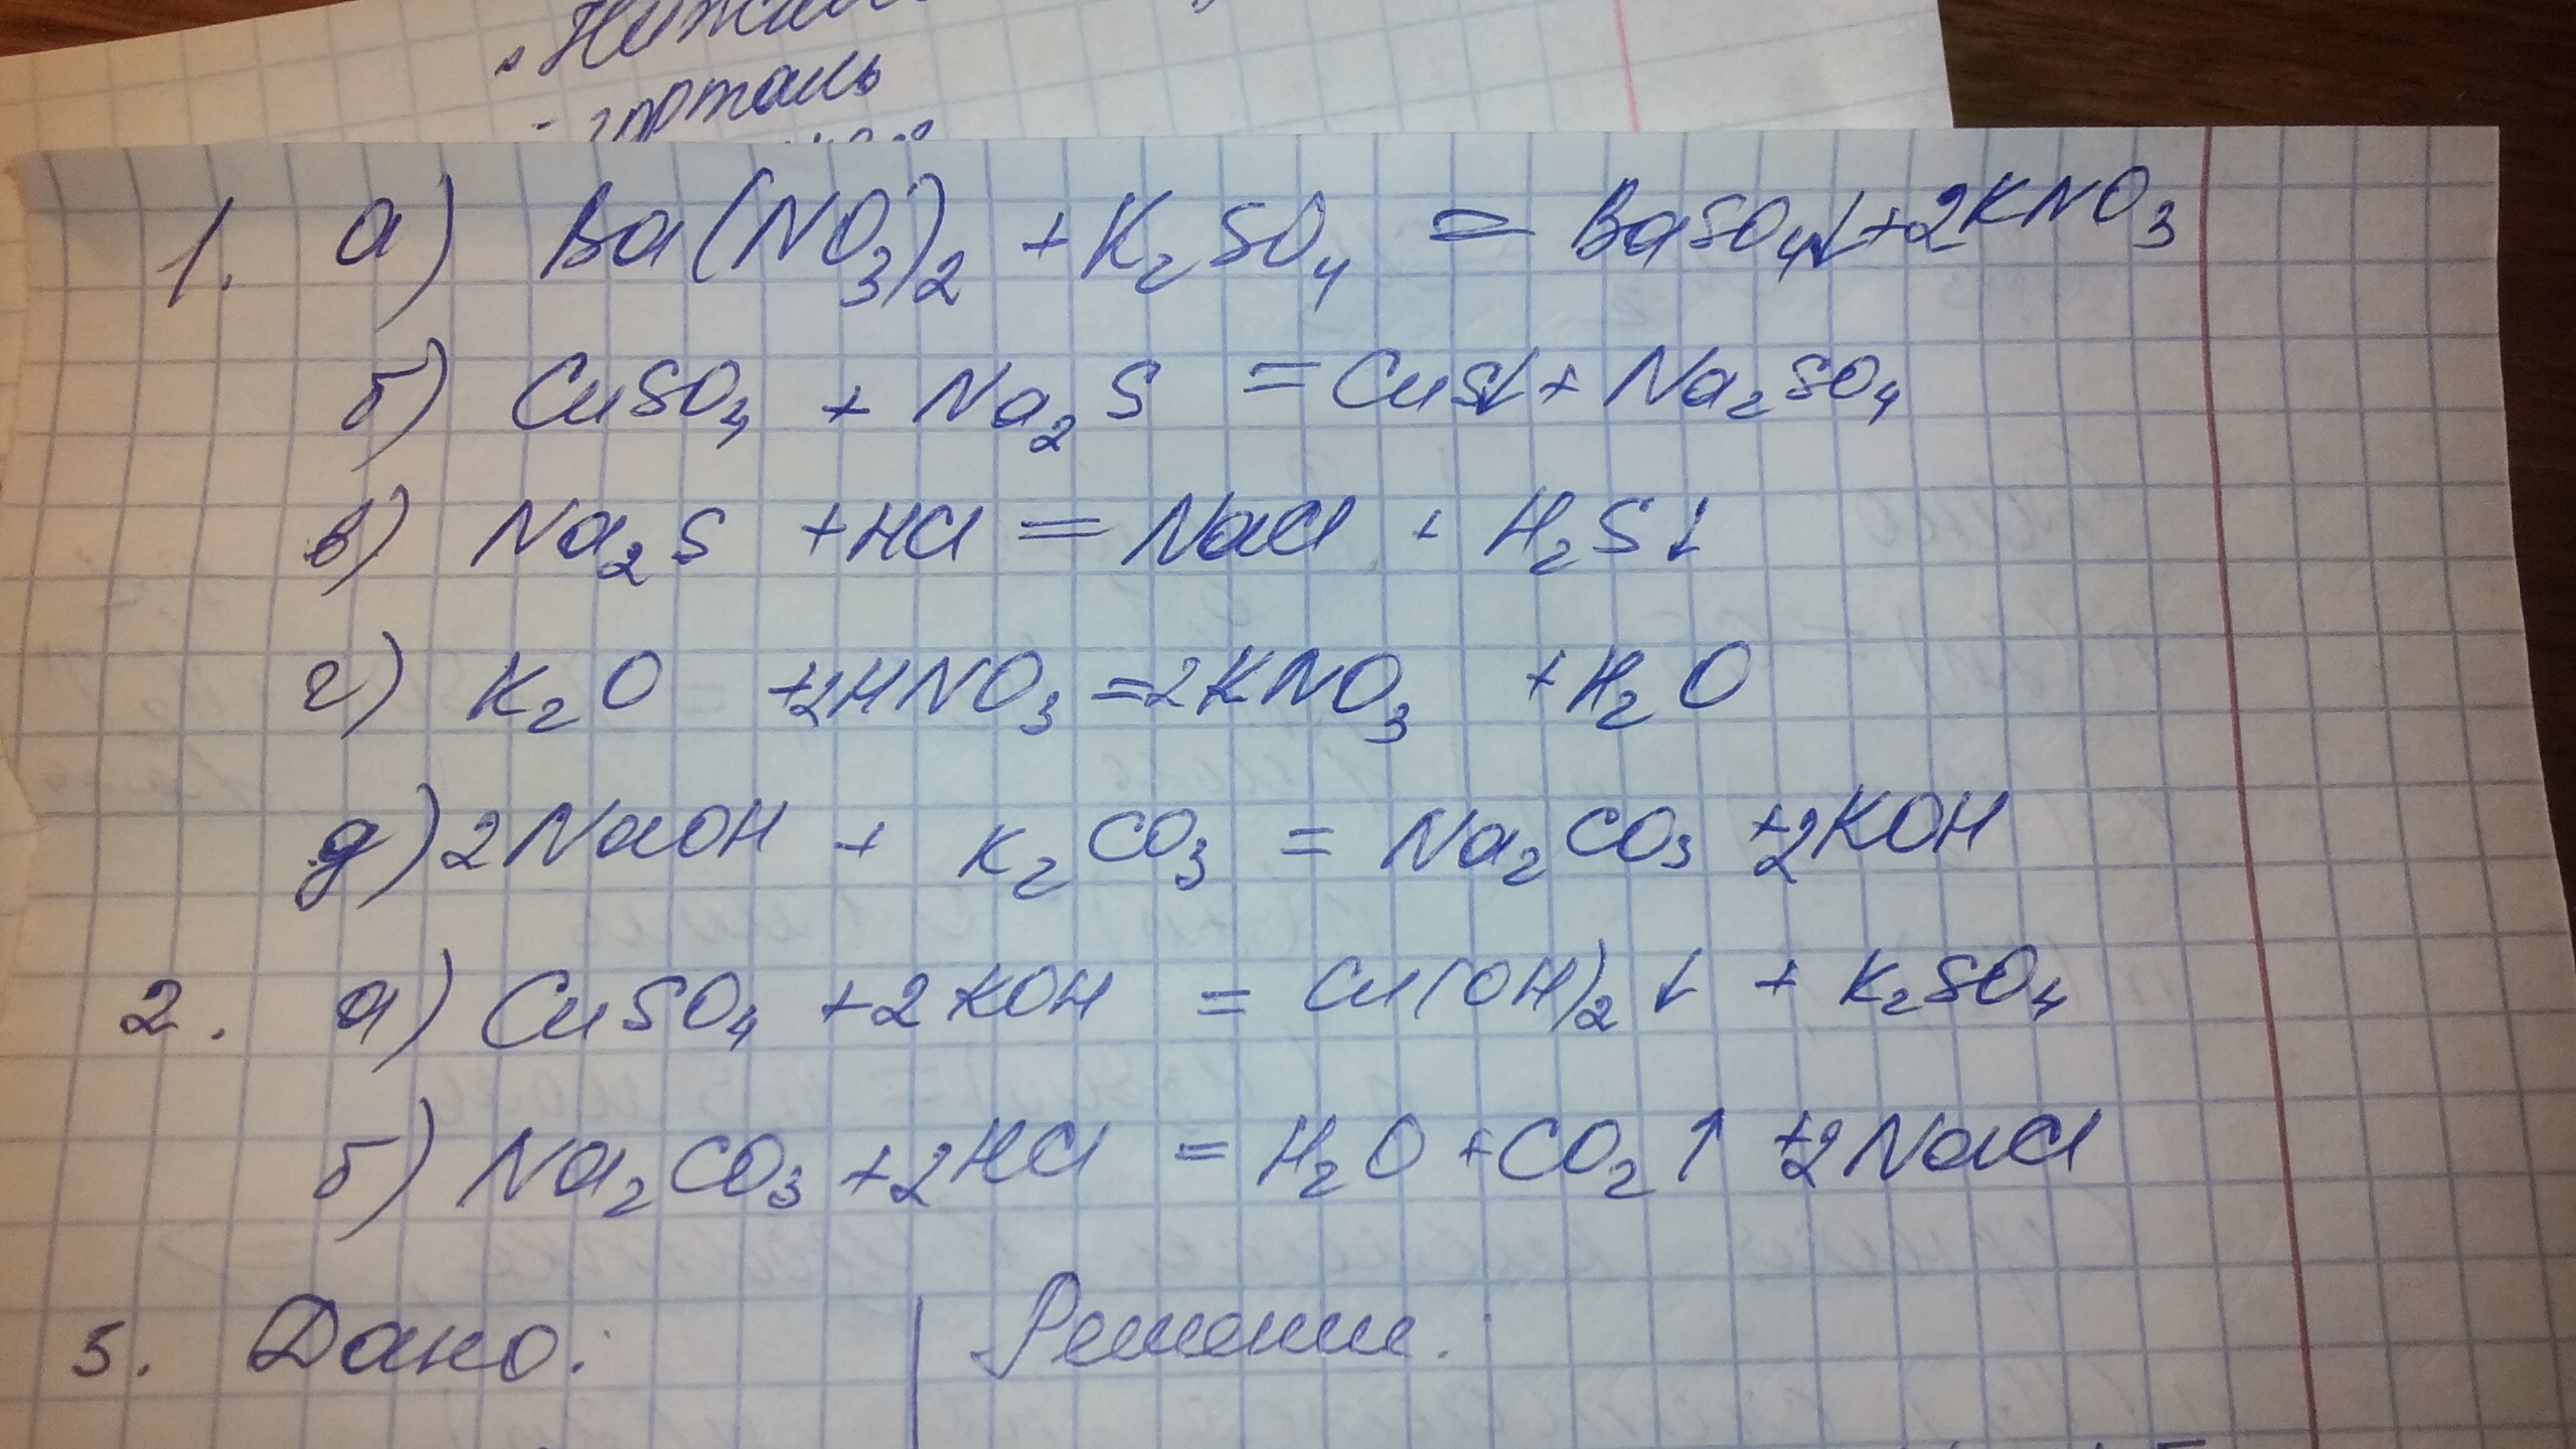 гортань
1. а) Ba(NO₃)₂ + K₂SO₄ = BaSO₄↓ + 2KNO₃
б) CuSO₄ + Na₂S = CuS↓ + Na₂SO₄
в) Na₂S + HCl = NaCl + H₂S↓
г) K₂O + 2HNO₃ = 2KNO₃ + H₂O
д) 2NaOH + K₂CO₃ = Na₂CO₃ + 2KOH
2. а) CuSO₄ + 2KOH = Cu(OH)₂↓ + K₂SO₄
б) Na₂CO₃ + 2HCl = H₂O + CO₂↑ + 2NaCl
5. Дано: Решение: